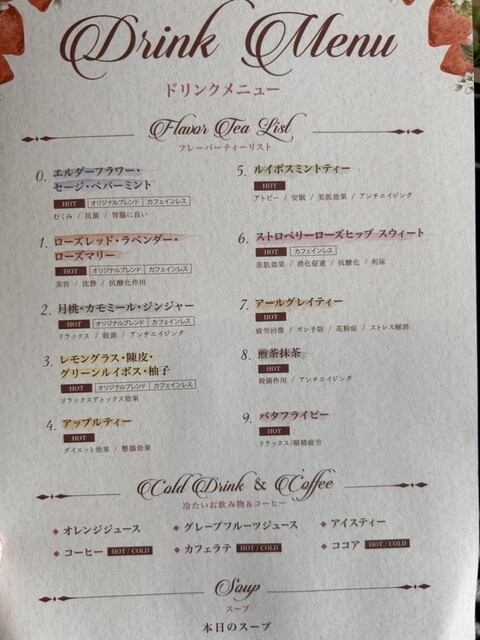 Drink Menu
ドリンクメニュー
Flavor Tea List
フレーバーティーリスト
0. エルダーフラワー・
セージ・ペパーミント
HOT オリジナルブレンド カフェインレス
むくみ / 抗菌 / 胃腸に良い
1. ローズレッド・ラベンダー・
ローズマリー
HOT オリジナルブレンド カフェインレス
美容 / 沈静 / 抗酸化作用
2. 月桃・カモミール・ジンジャー
HOT オリジナルブレンド カフェインレス
リラックス / 殺菌 / アンチエイジング
3. レモングラス・陳皮・
グリーンルイボス・柚子
HOT オリジナルブレンド カフェインレス
リラックスデトックス効果
4. アップルティー
HOT
ダイエット効果 / 整腸効果
5. ルイボスミントティー
HOT
アトピー / 安眠 / 美肌効果 / アンチエイジング
6. ストロベリーローズヒップ スウィート
HOT カフェインレス
美肌効果 / 消化促進 / 抗酸化 / 利尿
7. アールグレイティー
HOT
疲労回復 / ガン予防 / 花粉症 / ストレス解消
8. 煎茶抹茶
HOT
殺菌作用 / アンチエイジング
9. バタフライピー
HOT
リラックス/眼精疲労
Cold Drink & Coffee
冷たいお飲み物&コーヒー
オレンジジュース グレープフルーツジュース アイスティー
コーヒー HOT / COLD カフェラテ HOT / COLD ココア HOT / COLD
Soup
スープ
本日のスープ